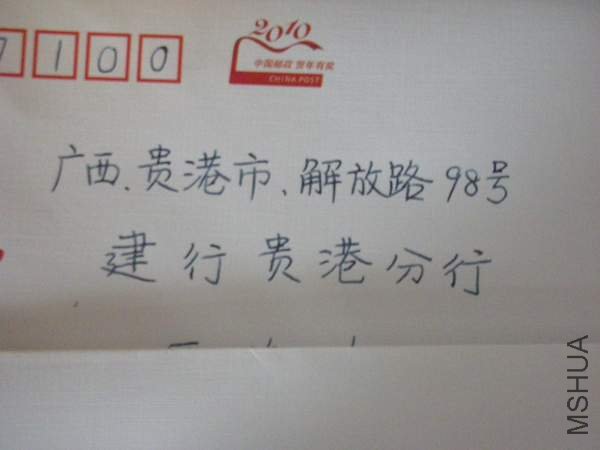 7100
2010
中国邮政 贺年有奖
CHINA POST
广西、贵港市、解放路98号
建行贵港分行
MSHUA